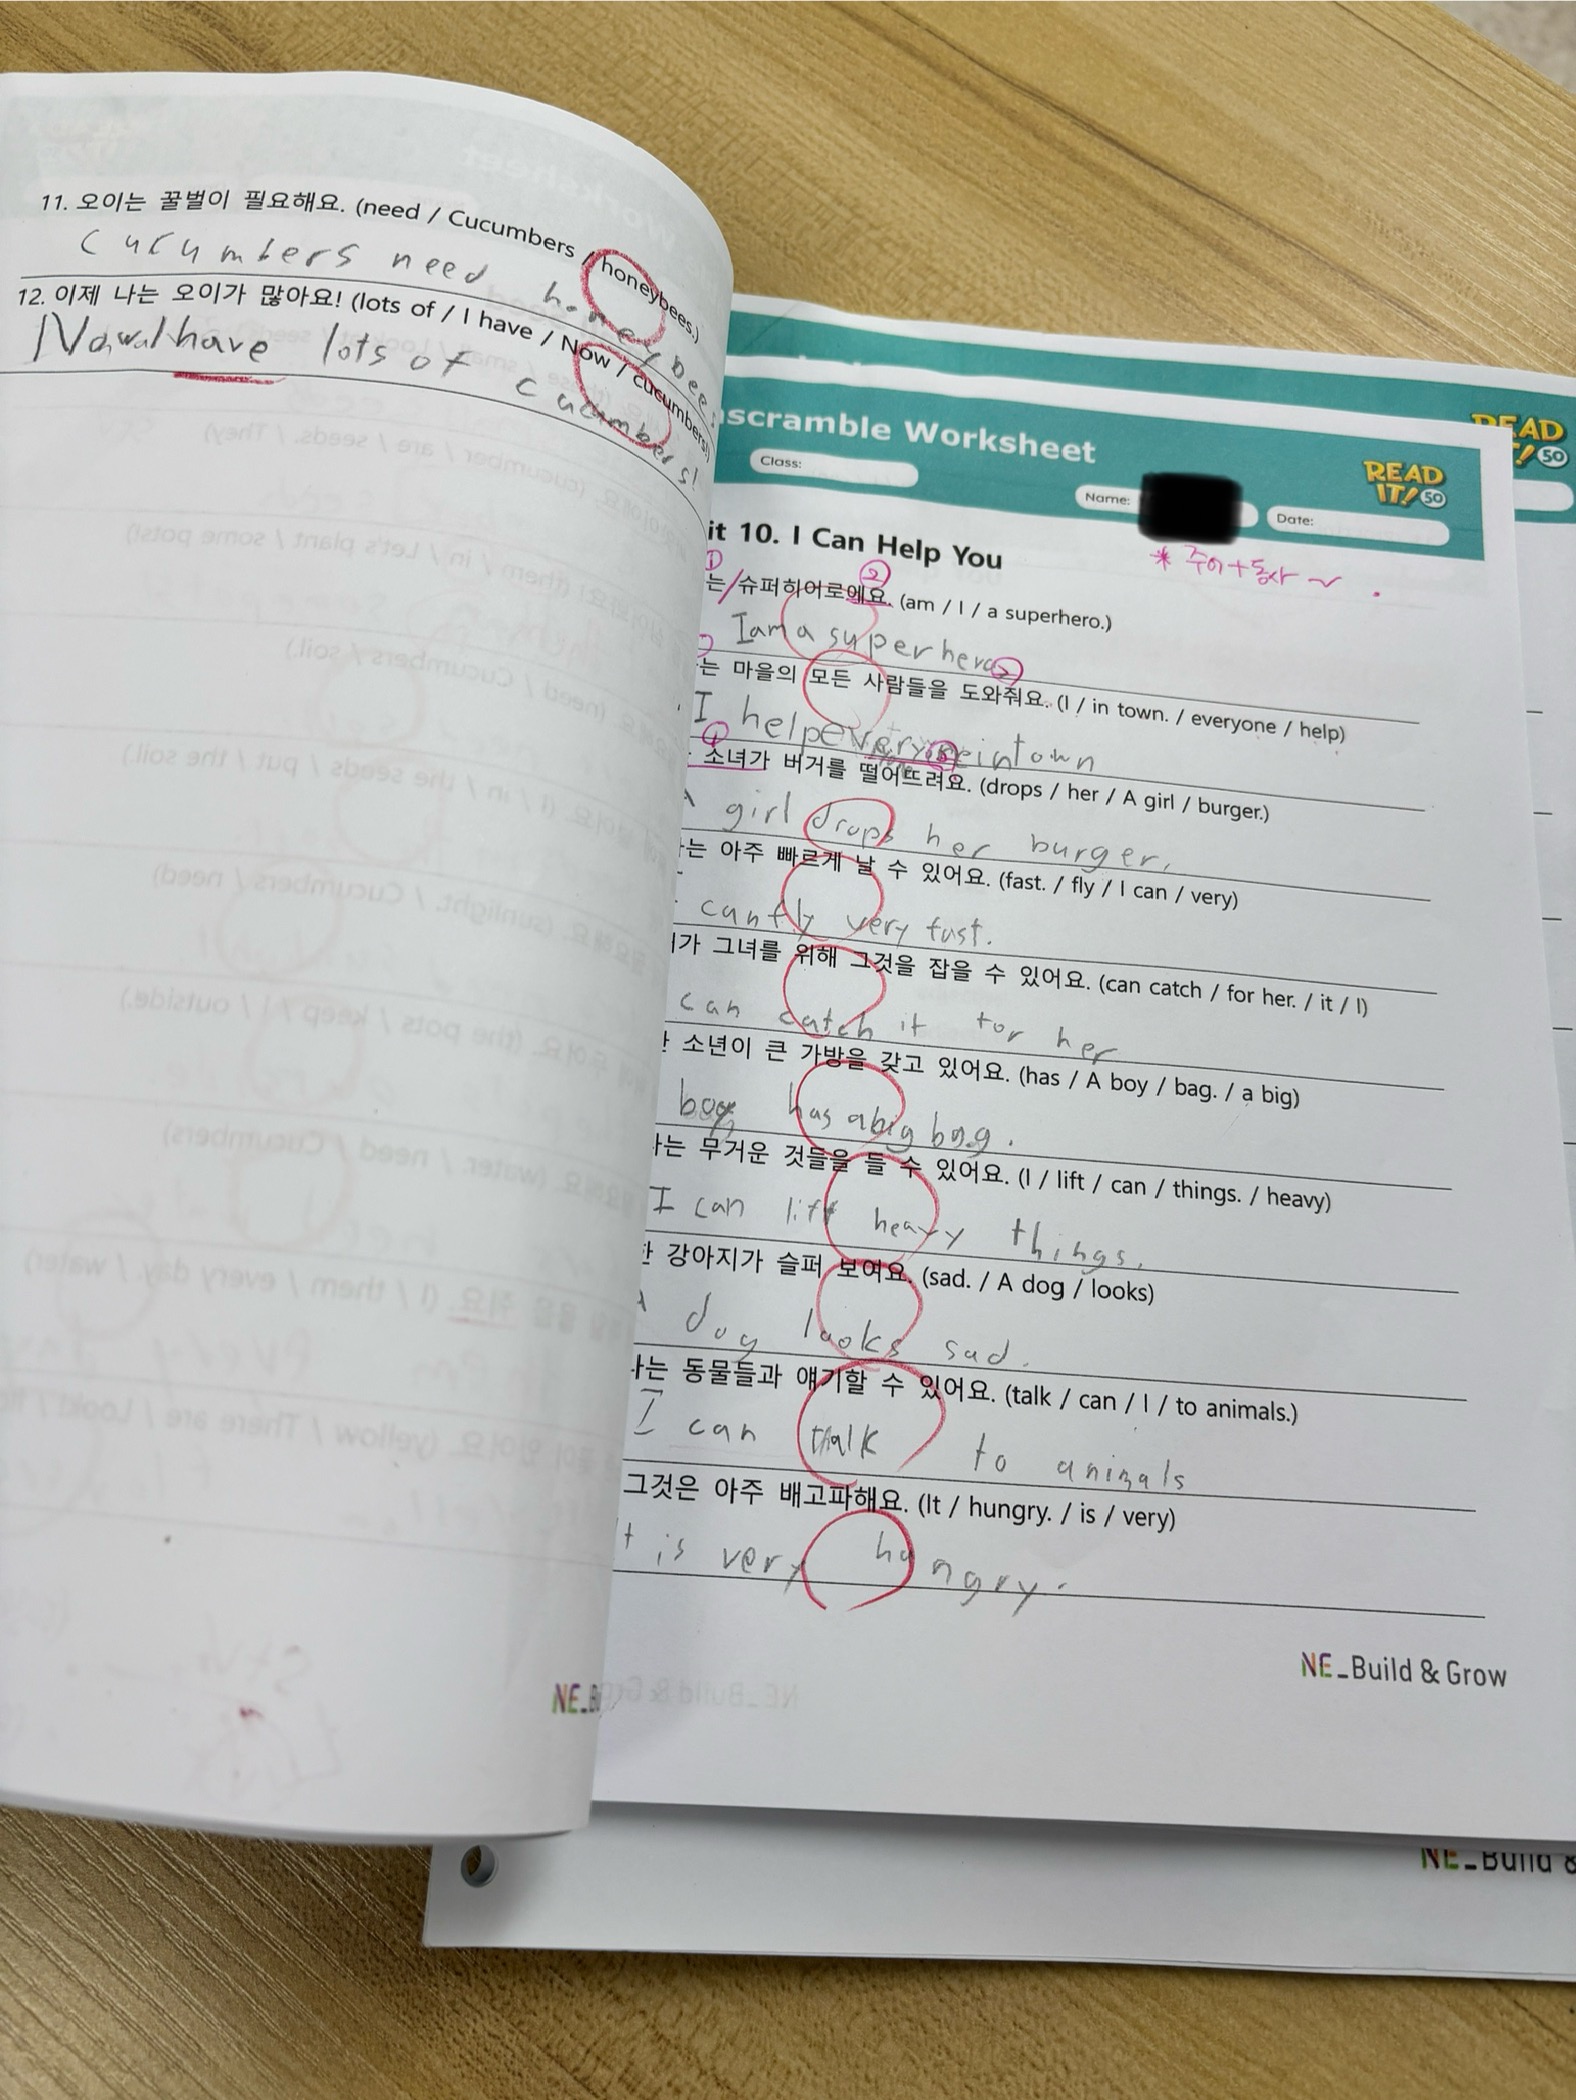 11. 오이는 꿀벌이 필요해요. (need / Cucumbers / honeybees.)
cucumbers need honeybees
12. 이제 나는 오이가 많아요! (lots of / I have / Now / cucumbers!)
have lots of cucumbers!
scramble Worksheet
READ IT! 50
Class:
Name:
Date:
READ IT! 50
it 10. I Can Help You
* 주어+동사 ~
① ②
는/슈퍼히어로예요. (am / I / a superhero.)
I am a superhero
는 마을의 모든 사람들을 도와줘요. (I / in town. / everyone / help)
I help everyone in town
소녀가 버거를 떨어뜨려요. (drops / her / A girl / burger.)
A girl drops her burger.
는 아주 빠르게 날 수 있어요. (fast. / fly / I can / very)
can fly very fast.
가 그녀를 위해 그것을 잡을 수 있어요. (can catch / for her. / it / I)
can catch it for her
소년이 큰 가방을 갖고 있어요. (has / A boy / bag. / a big)
boy has a big bag.
는 무거운 것들을 들 수 있어요. (I / lift / can / things. / heavy)
I can lift heavy things.
한 강아지가 슬퍼 보여요. (sad. / A dog / looks)
A dog looks sad.
나는 동물들과 얘기할 수 있어요. (talk / can / I / to animals.)
I can talk to animals
그것은 아주 배고파해요. (It / hungry. / is / very)
It is very hungry.
NE_Build & Grow
NE_B
NE_Build &